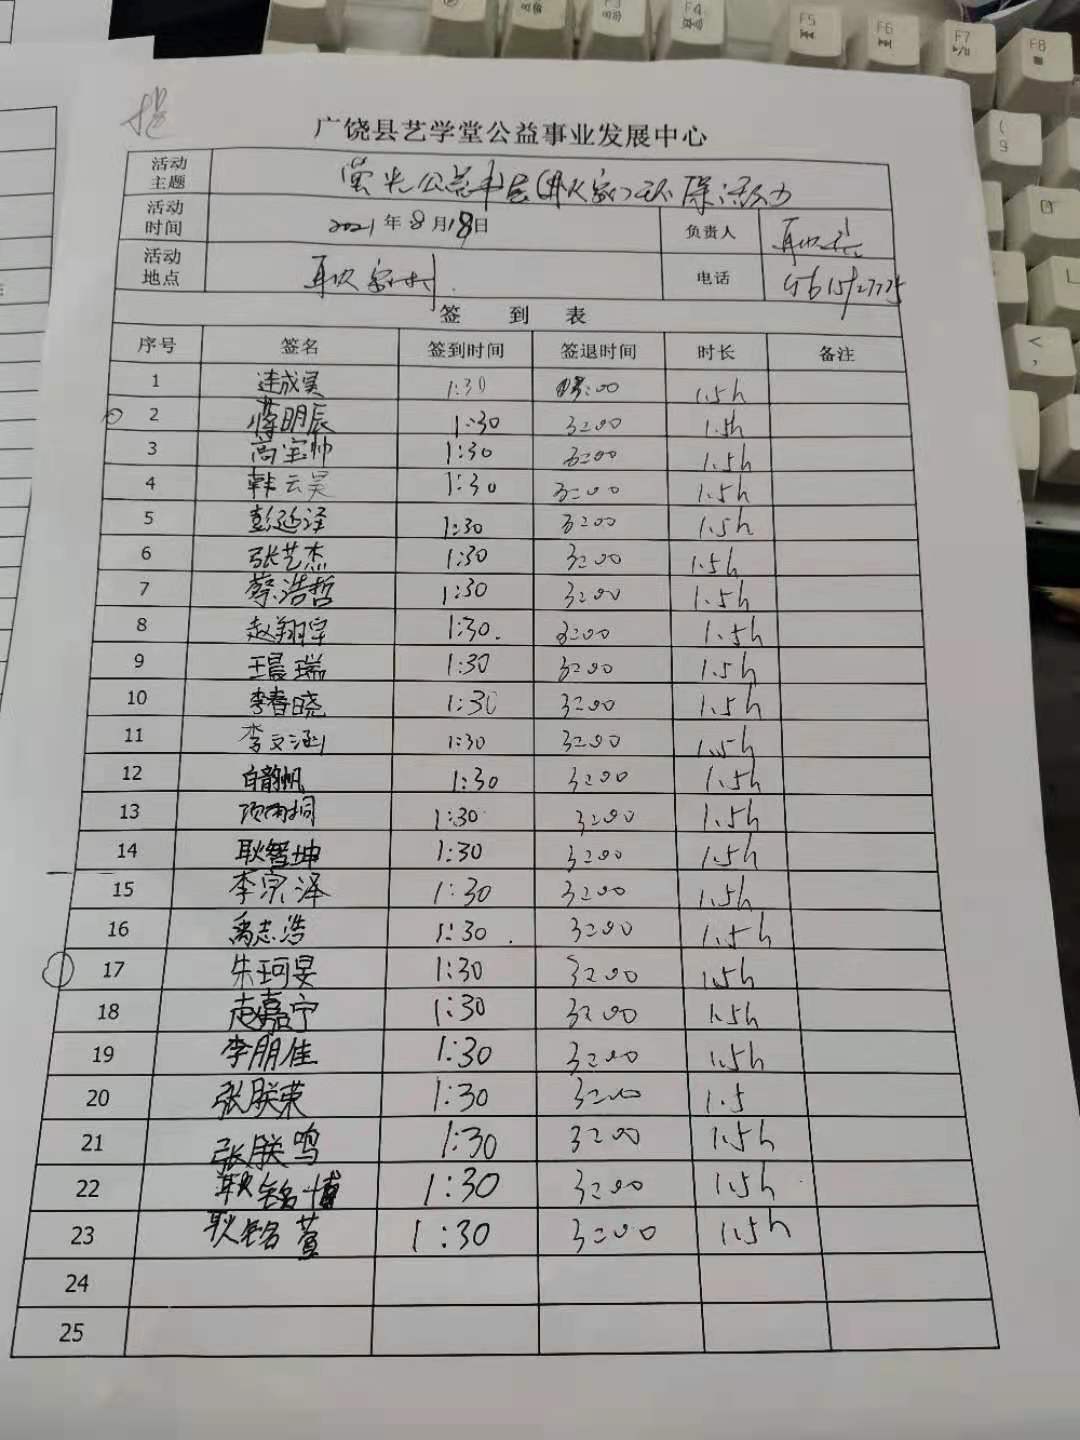 广饶县艺学堂公益事业发展中心
活动主题 萤光公益书屋(耿家)环保活动
活动时间 2021年8月18日 负责人
活动地点 耿家村. 电话
签到表
序号 签名 签到时间 签退时间 时长 备注
1 连成昊 1:30 3:00 1.5h
2 蒋明辰 1:30 3:00 1.5h
3 高宝帅 1:30 3:00 1.5h
4 韩云昊 1:30 3:00 1.5h
5 彭延泽 1:30 3:00 1.5h
6 张艺杰 1:30 3:00 1.5h
7 蔡浩哲 1:30 3:00 1.5h
8 赵翔宇 1:30. 3:00 1.5h
9 王晨瑞 1:30 3:00 1.5h
10 李春晓 1:30 3:00 1.5h
11 李文涵 1:30 3:00 1.5h
12 白韵帆 1:30 3:00 1.5h
13 1:30 3:00 1.5h
14 耿智坤 1:30 3:00 1.5h
15 李宗泽 1:30 3:00 1.5h
16 禹志浩 1:30. 3:00 1.5h
17 朱珂旻 1:30 3:00 1.5h
18 赵嘉宁 1:30 3:00 1.5h
19 李朋佳 1:30 3:00 1.5h
20 张朕荣 1:30 3:00 1.5
21 张朕鸣 1:30 3:00 1.5h
22 耿铭博 1:30 3:00 1.5h
23 耿铭萱 1:30 3:00 1.5h
24
25